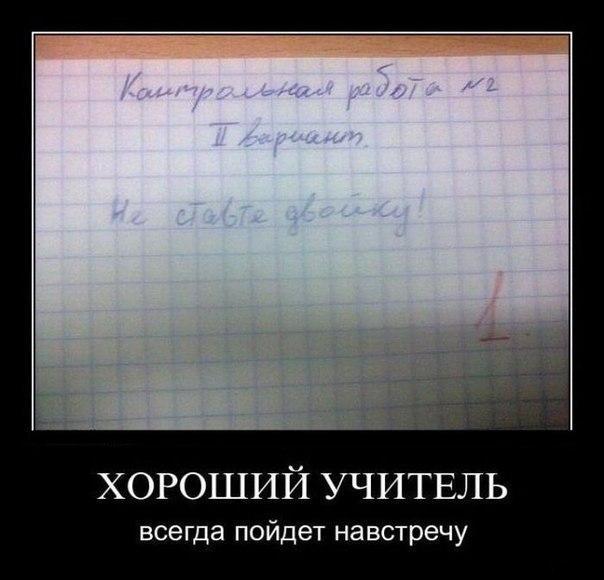 Контрольная работа №2
II Вариант.
Не ставте двойку!
1
ХОРОШИЙ УЧИТЕЛЬ
всегда пойдет навстречу